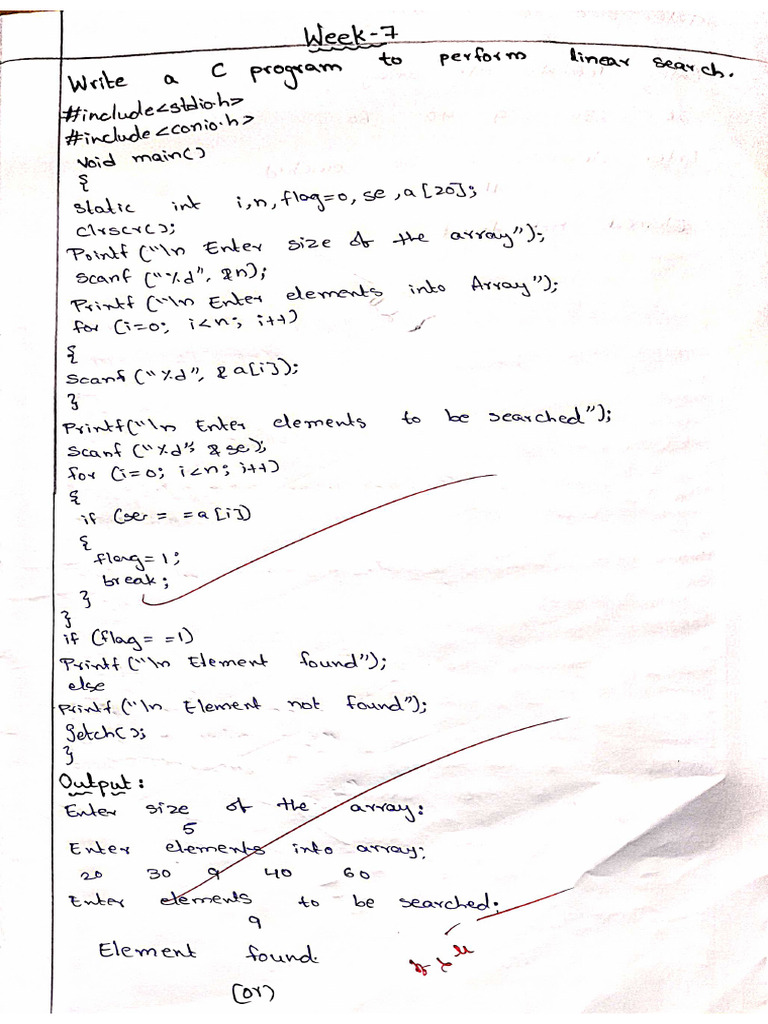 Week-7
Write a C program to perform linear search.
#include<stdio.h>
#include<conio.h>
void main()
{
static int i,n,flag=0, se ,a[20];
clrscr();
Printf ("\n Enter size of the array");
scanf ("%d", &n);
Printf ("\n Enter elements into Array");
for (i=0; i<n; i++)
{
scanf ("%d", &a[i]);
}
Printf("\n Enter elements to be searched");
scanf ("%d", &se);
for (i=0; i<n; i++)
{
if (ser = =a[i])
{
flag=1;
break;
}
}
if (flag= =1)
Printf ("\n Element found");
else
Printf ("\n Element not found");
getch();
}
Output:
Enter size of the array:
5
Enter elements into array:
20 30 9 40 60
Enter elements to be searched:
9
Element found.
(or)